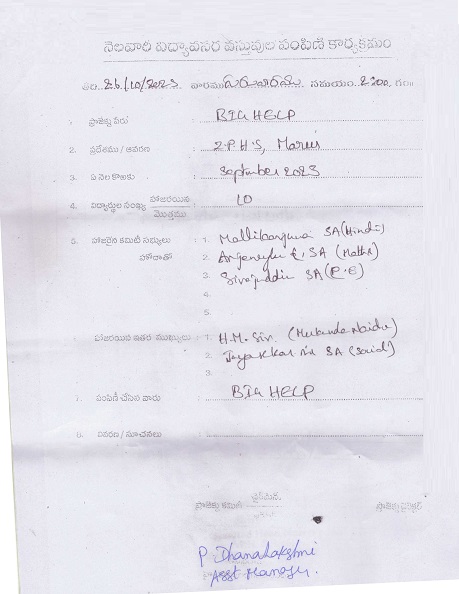 నెలవారీ విద్యావసర వస్తువుల పంపిణీ కార్యక్రమం
తేది. 26/10/2023 వారము గురువారము సమయం. 2:00 గం॥
1. ప్రాజెక్టు పేరు BIG HELP
2. ప్రదేశము / ఆవరణ Z.P.H.S,
3. ఏ నెల కొరకు September 2023
4. విద్యార్థుల సంఖ్య హాజరయిన 10
మొత్తము
5. హాజరైన కమిటీ సభ్యులు 1. Mallikarjuna SA(Hindi)
సహాదాతో 2. SA (Maths)
3. Sirajuddin SA(P.E)
4.
5.
హాజరయిన ఇతర ముఖ్యులు 1. H.M. Sir (Mukunda Naidu)
2. SA (Social)
3.
7. పంపిణీ చేసిన వారు BIG HELP
8. వివరణ / సూచనలు
ప్రాజెక్టు కమిటీ ఛైర్మన్ ప్రాజెక్టు డైరెక్టర్
P. Dhanalakshmi
Asst Manager.